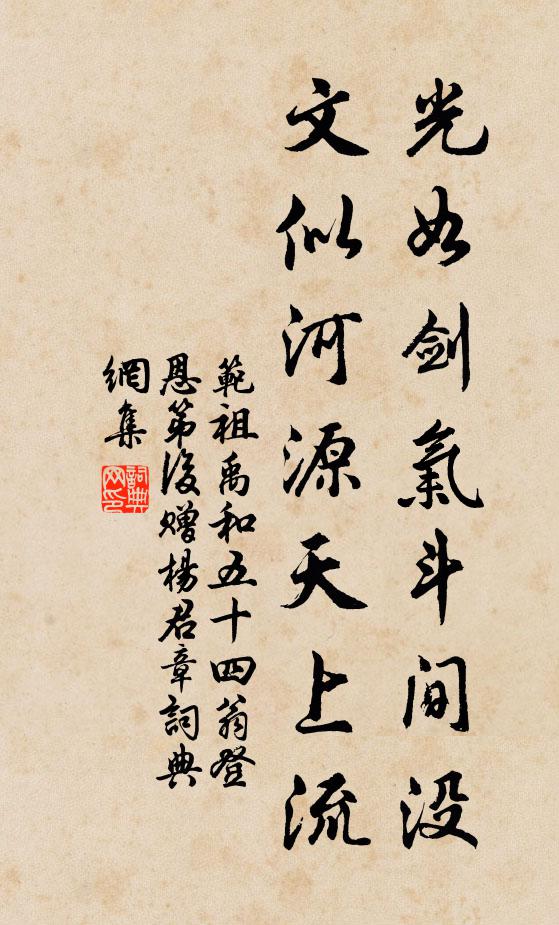 光如剑氣斗间没
文似河源天上流
範祖禹和五十四翁登
恩第後贈楊君章詞典
網集
詞典
网印